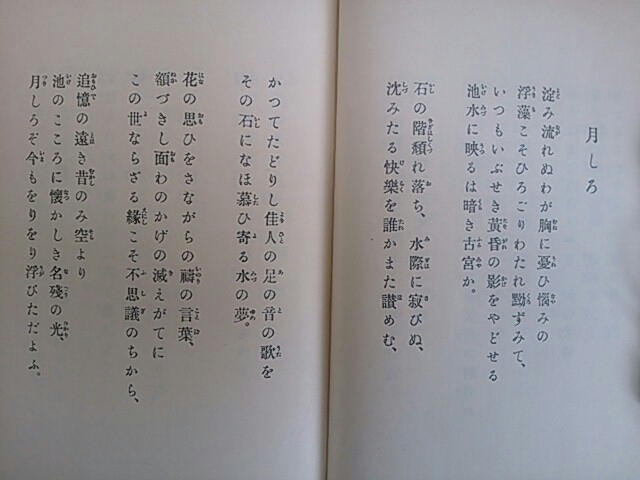 月しろ
淀み流れぬわが胸に憂ひ惱みの
浮藻こそひろごりわたれ黝ずみて、
いつもいぶせき黃昏の影をやどせる
池水に映るは暗き古宮か。
石の階頽れ落ち、水際に寂びぬ、
沈みたる快樂を誰かまた讃めむ、
かつてたどりし佳人の足の音の歌を
その石になほ慕ひ寄る水の夢。
花の思ひをさながらの禱の言葉、
額づきし面わのかげの滅えがてに
この世ならざる緣こそ不思議のちから、
追憶の遠き昔のみ空より
池のこころに懷かしき名殘の光、
月しろぞ今もをりをり浮びただよふ。